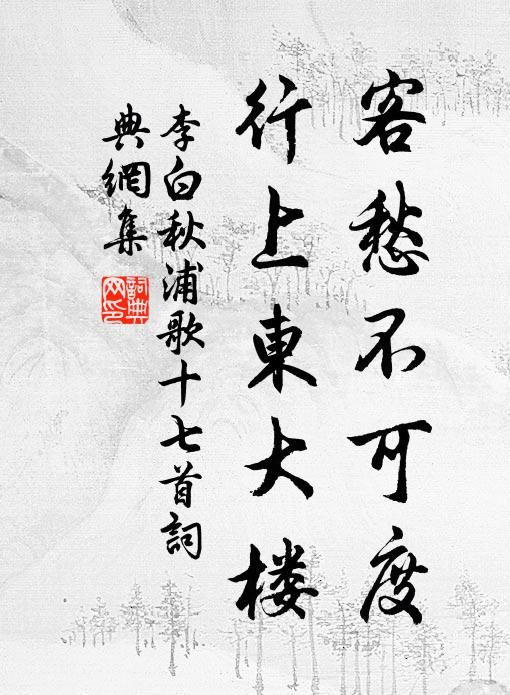 客愁不可度
行上東大楼
李白秋浦歌十七首詞
典網集
詞典
网印